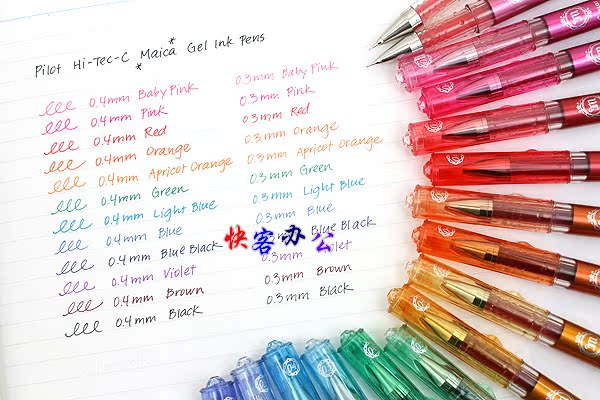 Pilot Hi-Tec-C Maica Gel Ink Pens
0.4mm Baby Pink 0.3mm Baby Pink
0.4mm Pink 0.3mm Pink
0.4mm Red 0.3mm Red
0.4mm Orange 0.3mm Orange
0.4mm Apricot Orange 0.3mm Apricot Orange
0.4mm Green 0.3mm Green
0.4mm Light Blue 0.3mm Light Blue
0.4mm Blue 0.3mm Blue
0.4mm Blue Black 0.3mm Blue Black
快客办公
0.4mm Violet 0.3mm Violet
0.4mm Brown 0.3mm Brown
0.4mm Black 0.3mm Black